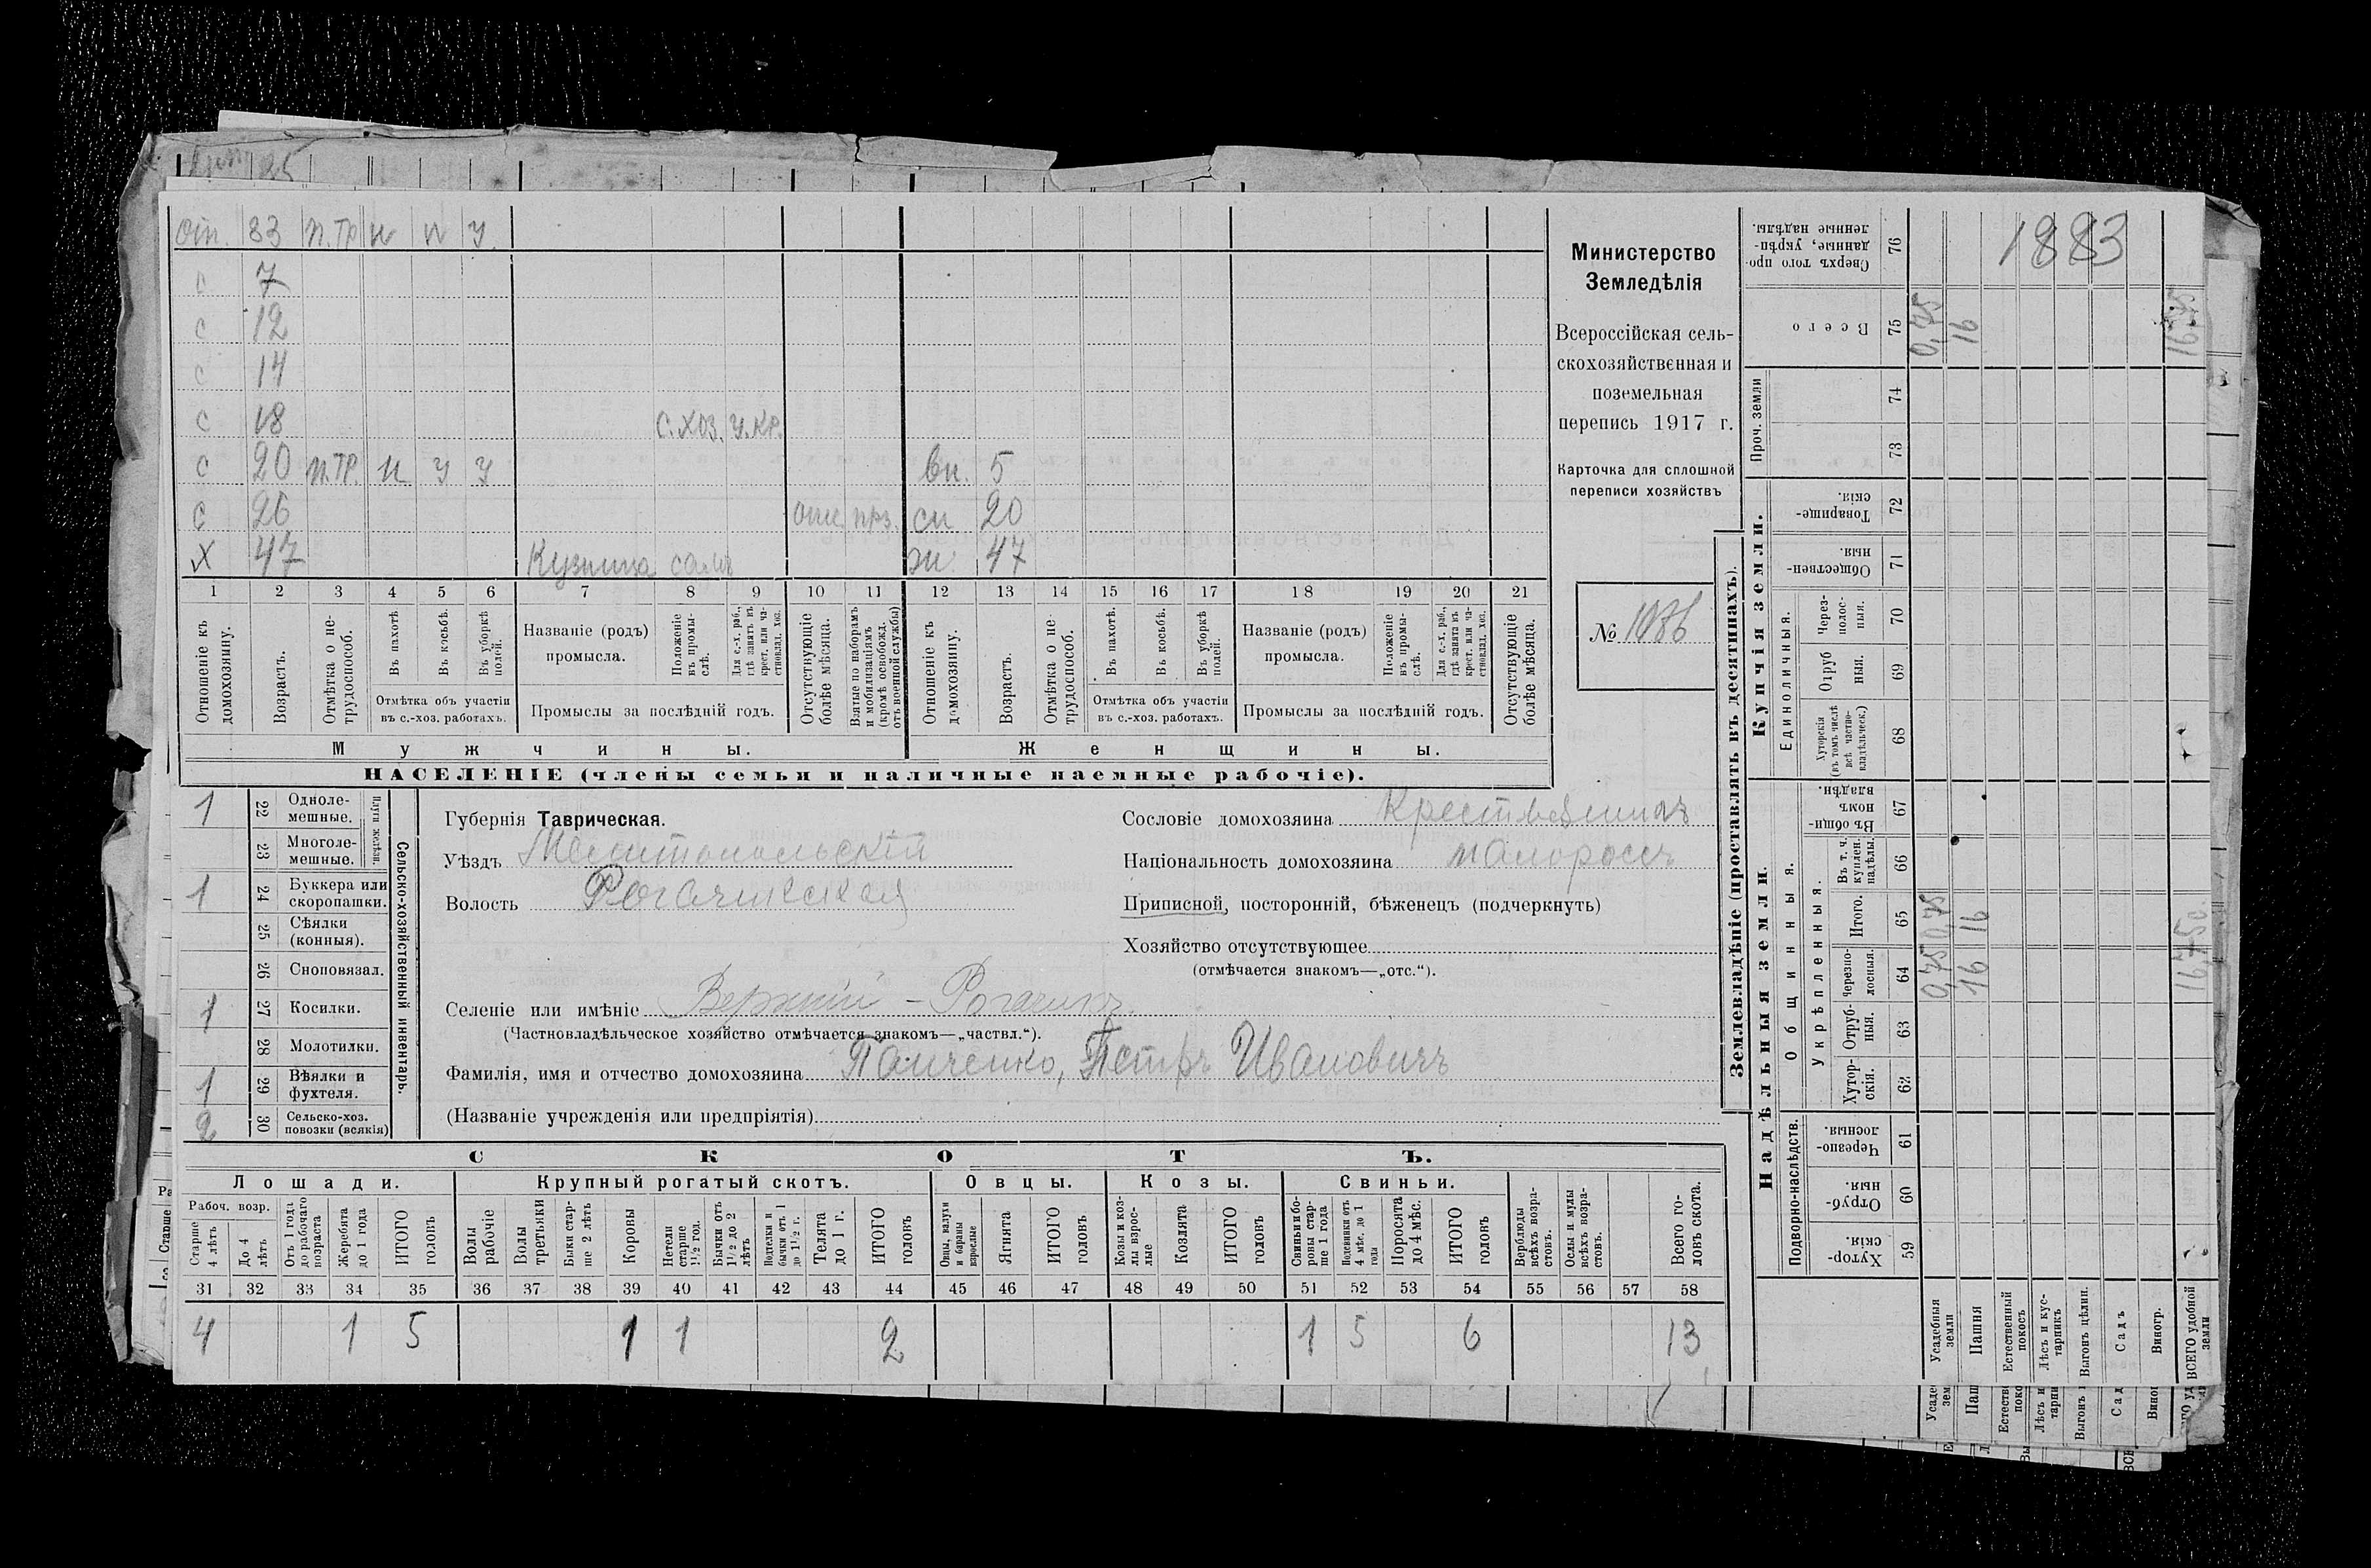 От. 83 п.тр н н у.
с 7
с 12
с 14
с 18 с.хоз. у.кр.
с 20 п.тр. н у у вн. 5
с 26 сн 20
х 47 Кузница самъ ж. 47
1 2 3 4 5 6 7 8 9 10 11 12 13 14 15 16 17 18 19 20 21
Отношеніе къ домохозяину.
Возрастъ.
Отмѣтка о не-трудоспособ.
Въ пахотѣ
Въ косьбѣ.
Въ уборкѣ полей.
Отмѣтка объ участіи въ с.-хоз. работахъ.
Названіе (родъ) промысла.
Положеніе въ промы-слѣ.
Для с.-х. раб., гдѣ занятъ въ крест. или ча-стновлад. хоз.
Промыслы за послѣдній годъ.
Отсутствующіе болѣе мѣсяца.
Взятые по наборамъ и мобилизаціямъ (кромѣ освобожд. отъ военной службы)
Отношеніе къ домохозяину.
Возрастъ.
Отмѣтка о не-трудоспособ.
Въ пахотѣ.
Въ косьбѣ.
Въ уборкѣ полей.
Отмѣтка объ участіи въ с.-хоз. работахъ.
Названіе (родъ) промысла.
Положеніе въ промы-слѣ.
Для с.-х. раб., гдѣ занята въ крест. или ча-стновлад. хоз.
Промыслы за послѣдній годъ.
Отсутствующіе болѣе мѣсяца.
Мужчины. Женщины.
НАСЕЛЕНІЕ (члены семьи и наличные наемные рабочіе).
Министерство
Земледѣлія
Всероссійская сель-
скохозяйственная и
поземельная
перепись 1917 г.
Карточка для сплошной
переписи хозяйствъ
№ 1086
Сельско-хозяйственный инвентарь.
Плуги желѣзн.
1 22 Одноле-мешные.
23 Многоле-мешные.
1 24 Буккера или скоропашки.
25 Сѣялки (конныя).
26 Сноповязал.
1 27 Косилки.
28 Молотилки.
1 29 Вѣялки и фухтеля.
2 30 Сельско-хоз. повозки (всякія)
Губернія Таврическая.
Уѣздъ Мелитопольскій
Волость Рогачикская
Селеніе или имѣніе Верхній - Рогачикъ
(Частновладѣльческое хозяйство отмѣчается знакомъ—„частвл.“).
Фамилія, имя и отчество домохозяина Панченко, Петръ Ивановичъ
(Названіе учрежденія или предпріятія)
Сословіе домохозяина Крестьянинъ
Національность домохозяина малороссъ
Приписной, посторонній, бѣженецъ (подчеркнуть)
Хозяйство отсутствующее
(отмѣчается знакомъ—„отс.“).
СКОТЪ.
Лошади. Крупный рогатый скотъ. Овцы. Козы. Свиньи.
Рабоч. возр.
Старше 4 лѣтъ
До 4 лѣтъ
Отъ 1 года до рабочаго возраста
Жеребята до 1 года
ИТОГО головъ
Волы рабочіе
Волы третьяки
Быки стар-ше 2 лѣтъ
Коровы
Нетели старше 1 1/2 год.
Бычки отъ 1 1/2 до 2 лѣтъ
Подтелки и бычки отъ 1 до 1 1/2 г.
Телята до 1 г.
ИТОГО головъ
Овцы, валухи и бараны взрослые
Ягнята
ИТОГО головъ
Козы и коз-лы взрос-лые
Козлята
ИТОГО головъ
Свиньи и бо-ровы стар-ше 1 года
Подсвинки отъ 4 мѣс. до 1 года
Поросята до 4 мѣс.
ИТОГО головъ
Верблюды всѣхъ возра-стовъ.
Ослы и мулы всѣхъ возра-стовъ.
Всего го-ловъ скота.
31 32 33 34 35 36 37 38 39 40 41 42 43 44 45 46 47 48 49 50 51 52 53 54 55 56 57 58
4 1 5 1 1 2 1 5 6 13
Землевладѣніе (проставлять въ десятинахъ).
1883
Сверхъ того про-данные, укрѣп-ленные надѣлы. 76
Всего 75 0,75 16 16,75
Проч. земли 74 73
Купчія земли.
Товарище-скія. 72
Обществен-ныя. 71
Единоличныя.
Через-полос-ныя. 70
Отруб ныя. 69
Хуторскія (въ томъ числѣ всѣ частно-владѣльческ.) 68
Надѣльныя земли.
Общинныя.
Въ общи-номъ владѣн. 67
Укрѣпленныя.
Въ т. ч. куплен. надѣлы. 66
Итого. 65 0,75 16
Черезпо-лосныя. 64 0,75 16 16,75
Отруб-ныя. 63
Хутор-скія. 62
Подворно-наслѣдств.
Черезпо-лосныя. 61
Отруб-ныя. 60
Хутор-скія. 59
Усадебныя земли
Пашня
Естественный покосъ
Лѣсъ и кус-тарникъ
Выгонъ цѣлин.
Садъ
Виногр.
ВСЕГО удобной земли